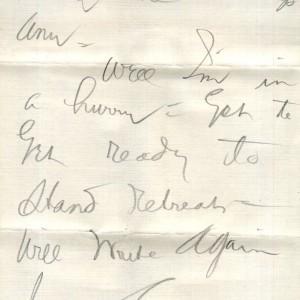 Well I'm in
a hurry - Got to
Get ready to
Stand Retreat -
Will Write Again